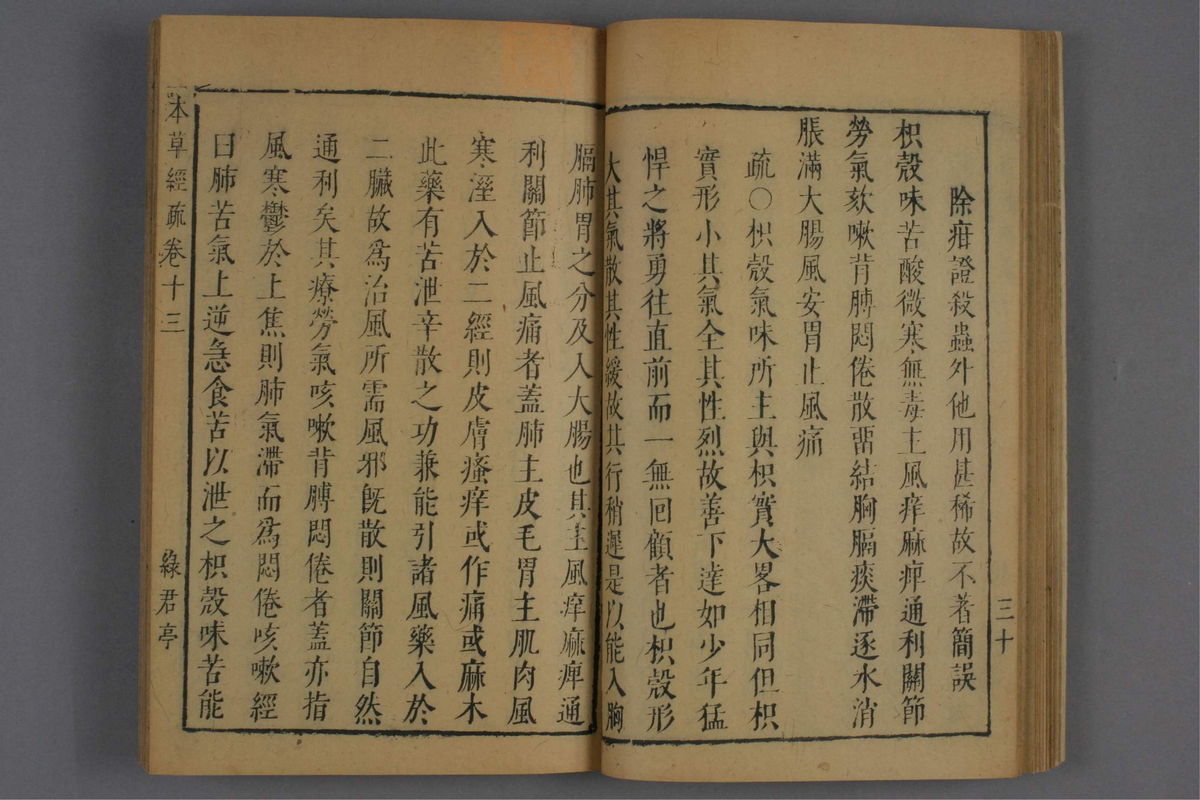 除疳證殺蟲外他用甚稀故不著簡誤
枳殼味苦酸微寒無毒主風痒麻痺通利關節
勞氣欬嗽背膊悶倦散畱結胸膈痰滯逐水消
脹滿大腸風安胃止風痛
疏○枳殼氣味所主與枳實大畧相同但枳
實形小其氣全其性烈故善下達如少年猛
悍之將勇往直前而一無囘顧者也枳殼形
大其氣散其性緩故其行稍遲是以能入胸
三十
膈肺胃之分及入大腸也其主風痒麻痺通
利關節止風痛者蓋肺主皮毛胃主肌肉風
寒溼入於二經則皮膚瘙痒或作痛或麻木
此藥有苦泄辛散之功兼能引諸風藥入於
二臟故爲治風所需風邪旣散則關節自然
通利矣其療勞氣咳嗽背膊悶倦者蓋亦指
風寒鬱於上焦則肺氣滯而爲悶倦咳嗽經
曰肺苦氣上逆急食苦以泄之枳殼味苦能
本草經疏卷十三
綠君亭